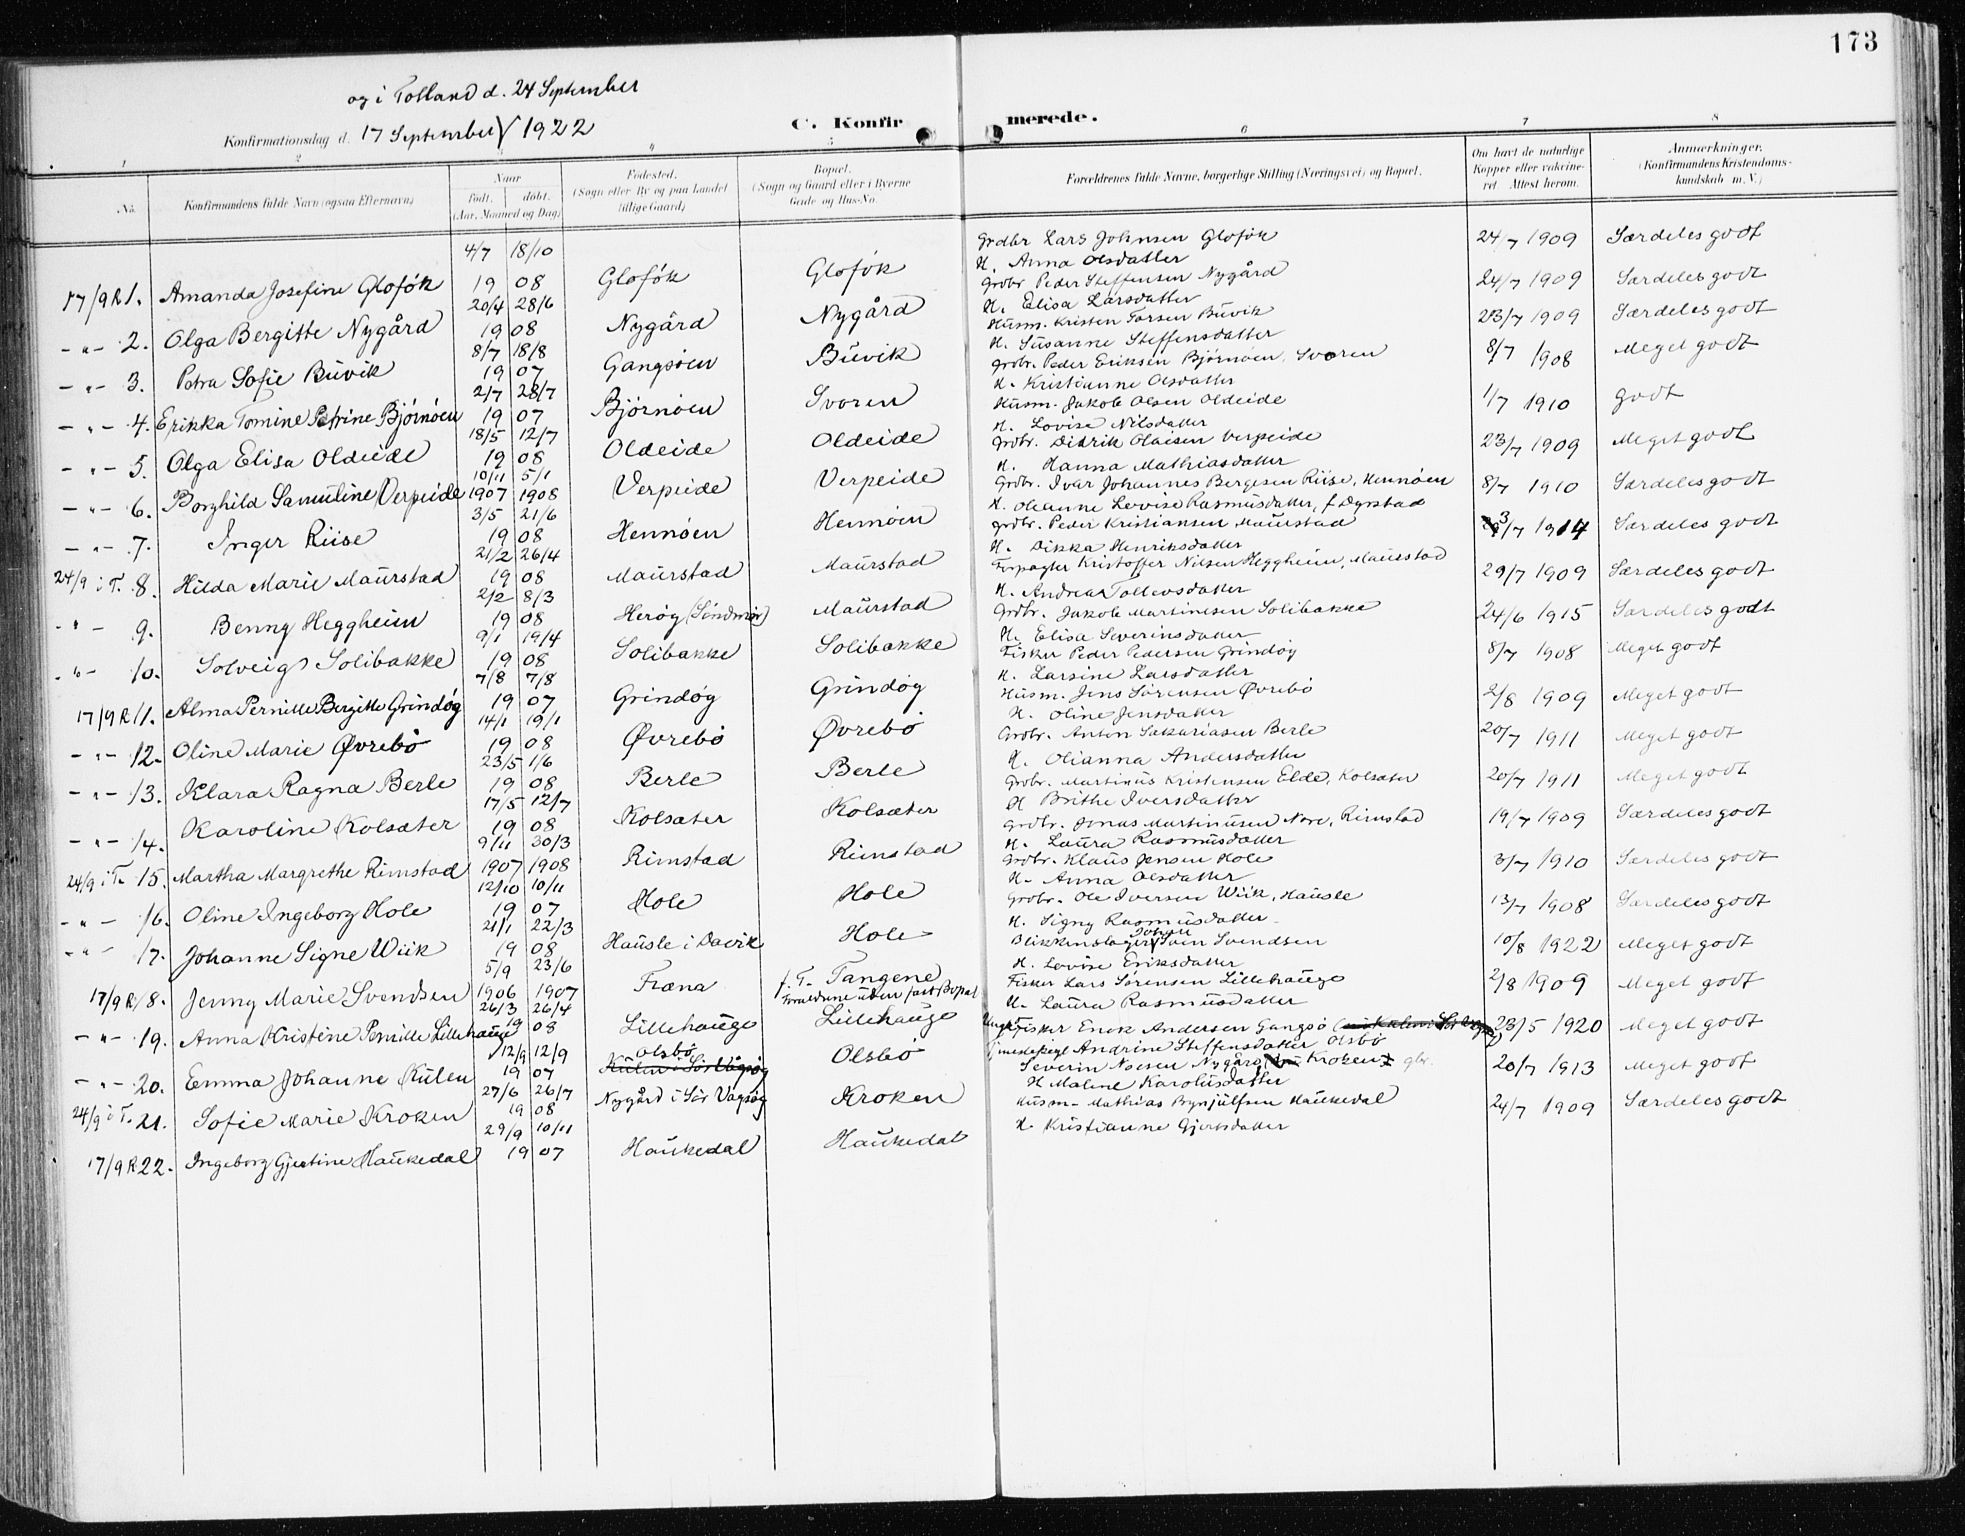 173
og i Totland d. 24 September
Konfirmationsdag d. 17 September 1922
C. Konfirmerede.
1 2 3 4 5 6 7 8
No. Konfirmandens fulde Navn (ogsaa Efternavn) Naar født. døbt. (Aar, Maaned og Dag) Fødested. (Sogn eller By og paa Landet tillige Gaard) Bopæl. (Sogn og Gaard eller i Byerne Gade og Hus-No. Forældrenes fulde Navne, borgerlige Stilling (Næringsvei) og Bopæl. Om havt de naturlige Kopper eller vakcineret. Attest herom. Anmærkninger. (Konfirmandens Kristendomskundskab m. V.)
4/7 18/10 Grdbr Lars Johnsen Gloføk 24/7 1909 Særdeles godt
17/9 R 1. Amanda Josefine Gloføk 19 08 Gloføk Gloføk H. Anna Olsdatter
20/4 28/6 Grdbr Peder Steffensen Nygård 24/7 1909 Særdeles godt
- " - 2. Olga Bergitte Nygård 19 08 Nygård Nygård H. Elisa Larsdatter
8/7 18/8 Husm. Kristen Torsen Buvik 23/7 1909 Særdeles godt
- " - 3. Petra Sofie Buvik 19 07 Gangsøen Buvik H. Susanne Steffensdatter
2/7 28/7 Grdbr. Peder Eriksen Bjørnøen, Svoren 8/7 1908 Meget godt
- " - 4. Erikka Tomine Petrine Bjørnøen 19 07 Bjørnøen Svoren H. Kristianne Olsdatter
18/5 12/7 Husm. Jakob Olsen Oldeide 1/7 1910 godt
- " - 5. Olga Elisa Oldeide 19 08 Oldeide Oldeide H. Lovise Nilsdatter
10/11 5/1 Grdbr. Didrik Olaisen Verpeide 23/7 1909 Meget godt
- " - 6. Borghild Samuline Verpeide 1907 1908 Verpeide Verpeide H. Hanna Mathiasdatter
3/5 21/6 Grdbr. Ivar Johannes Bergesen Riise, Hennøen 8/7 1910 Særdeles godt
- " - 7. Inger Riise 19 08 Hennøen Hennøen H. Oleanne Lovise Rasmusdatter, f. Dyrstad
21/2 26/4 Grdbr. Peder Kristiansen Maurstad 3/7 1914 Særdeles godt
24/9 i T. 8. Hilda Marie Maurstad 19 08 Maurstad Maurstad H. Dikka Henriksdatter
2/2 8/3 Forpagter Kristoffer Nilsen Heggheim, Maurstad 29/7 1909 Særdeles godt
- " - 9. Benny Heggheim 19 08 Herøy (Søndmør) Maurstad H. Andrea Tollevsdatter
9/1 19/4 Grdbr. Jakob Martinesen Solibakke 24/6 1915 Særdeles godt
- " - 10. Solveig Solibakke 19 08 Solibakke Solibakke H. Elisa Severinsdatter
7/8 7/8 Fisker Peder Pedersen Grindøy 8/7 1908 Meget godt
17/9 R 11. Alma Pernille Bergitte Grindøy 19 07 Grindøy Grindøy H. Larsine Larsdatter
14/1 19/1 Husm. Jens Sørensen Øvrebø 2/8 1909 Meget godt
- " - 12. Oline Marie Øvrebø 19 08 Øvrebø Øvrebø H. Oline Jensdatter
23/5 1/6 Grdbr. Anton Sakariasen Berle 20/7 1911 Meget godt
- " - 13. Klara Ragna Berle 19 08 Berle Berle H. Olianna Andersdatter
17/5 12/7 Grdbr. Martinus Kristensen Elde, Kolsæter 20/7 1911 Meget godt
- " - 14. Karoline Kolsæter 19 08 Kolsæter Kolsæter H Brithe Iversdatter
9/11 30/3 Grdbr. Jonas Martinusen Nore, Rimstad 19/7 1909 Særdeles godt
24/9 i T. 15. Martha Margrethe Rimstad 1907 1908 Rimstad Rimstad H. Laura Rasmusdatter
12/10 10/11 Grdbr. Klaus Jensen Hole 3/7 1910 Særdeles godt
- " - 16. Oline Ingeborg Hole 19 07 Hole Hole H. Anna Olsdatter
21/1 22/3 Grdbr. Ole Iversen Wiik, Hausle 13/7 1908 Særdeles godt
- " - 17. Johanne Signe Wiik 19 08 Hausle i Davik Hole H. Signy Rasmusdatter
5/9 23/6 Blikkenslager Johan Sven Svendsen 10/8 1922 Meget godt
17/9 R 18. Jenny Marie Svendsen 1906 1907 Fræna f. T. Tangene H. Lovise Eriksdatter
Forældrene uten fast Bopæl
26/3 26/4 Fisker Lars Sørensen Lillehauge 2/8 1909 Meget godt
- " - 19. Anna Kristine Pernille Lillehauge 19 08 Lillehauge Lillehauge H. Laura Rasmusdatter
12/9 12/9 Fisker Enok Andersen Gangsø 23/5 1920 Meget godt
- " - 20. Emma Johanne Kulen 19 07 Olsbø Olsbø Andrine Steffensdatter Olsbø
27/6 26/7 Severin Nygård Kroken 20/7 1913 Meget godt
24/9 i T. 21. Sofie Marie Kroken 19 08 Nygård i Sør Vågsøy Kroken H Malene Karolusdatter
29/9 10/11 Husm. Mathias Brynjulfsen Haukedal 24/7 1909 Særdeles godt
17/9 R 22. Ingeborg Gjertine Haukedal 19 07 Haukedal Haukedal H. Kristianne Gjertsdatter